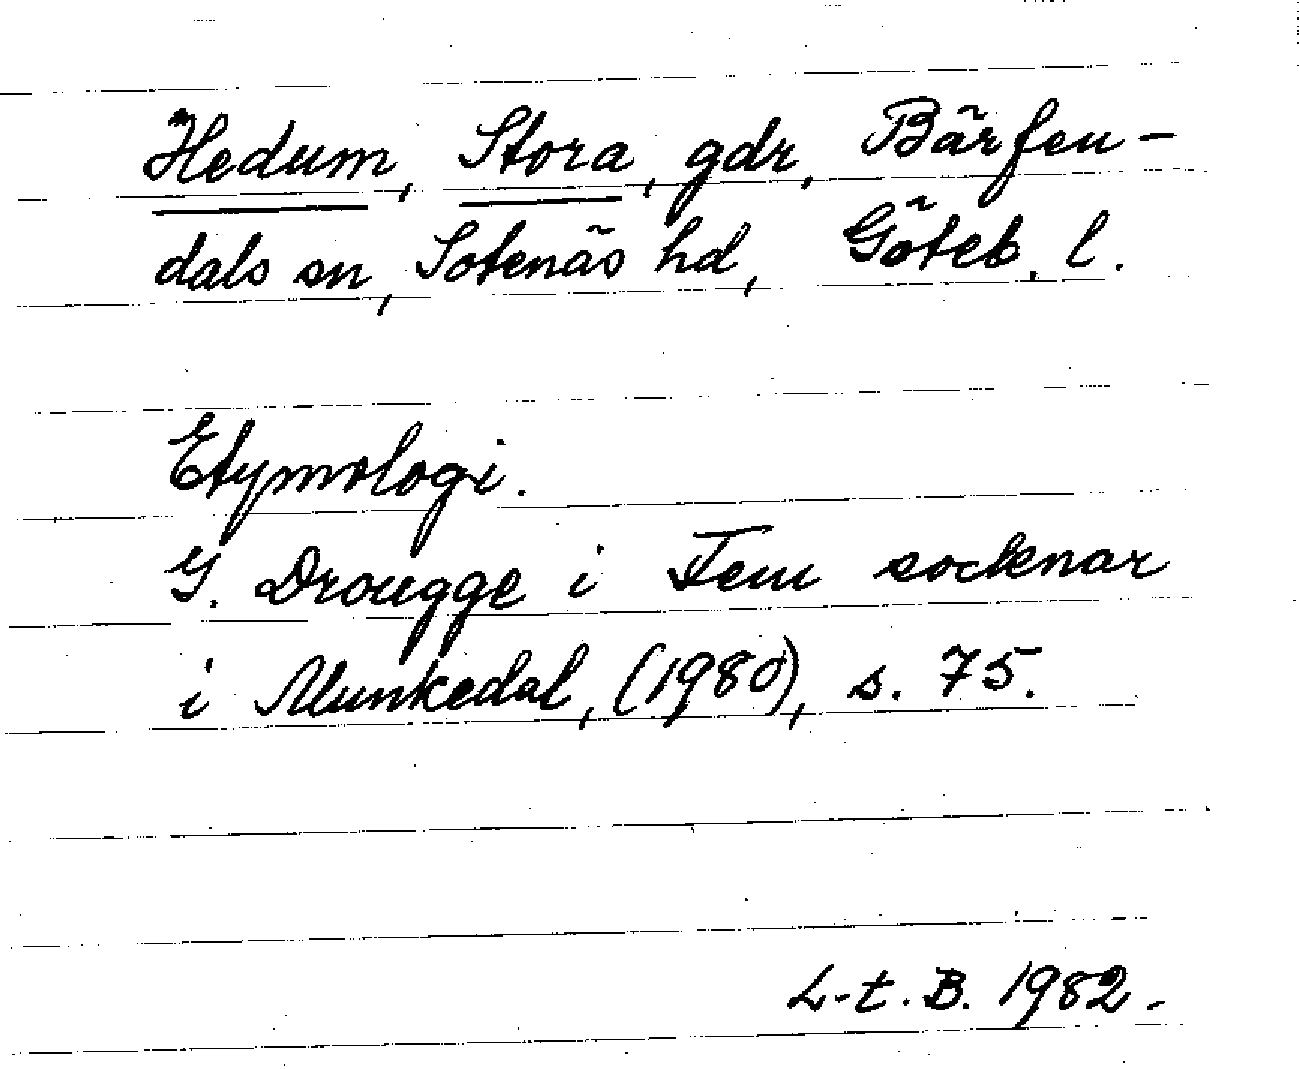 Hedum, Stora, gdr, Bärfen-
dals sn, Sotenäs hd, Göteb. l.
Etymologi.
G. Drougge i Fem socknar
i Munkedal, (1980), s. 75.
L-t. B. 1982.